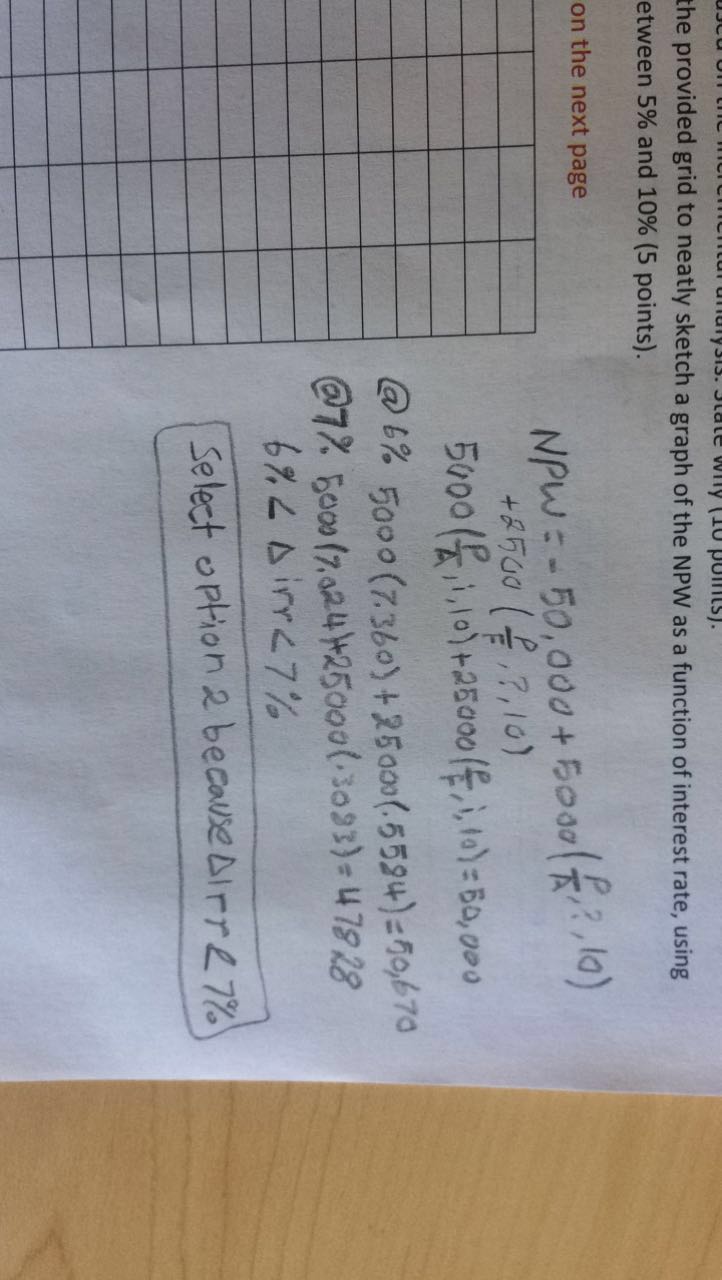 the provided grid to neatly sketch a graph of the NPW as a function of interest rate, using
etween 5% and 10% (5 points).
on the next page
NPW = - 50,000 + 5000 (P/A, ?, 10)
+ 2500 (P/F, ?, 10)
5000 (P/A, i, 10) + 25000 (P/F, i, 10) = 50,000
@ 6% 5000 (7.360) + 25000 (.5584) = 50,670
@ 7% 5000 (7.024) + 25000 (.3083) = 47828
6% < Δirr < 7%
Select option 2 because Δirr < 7%